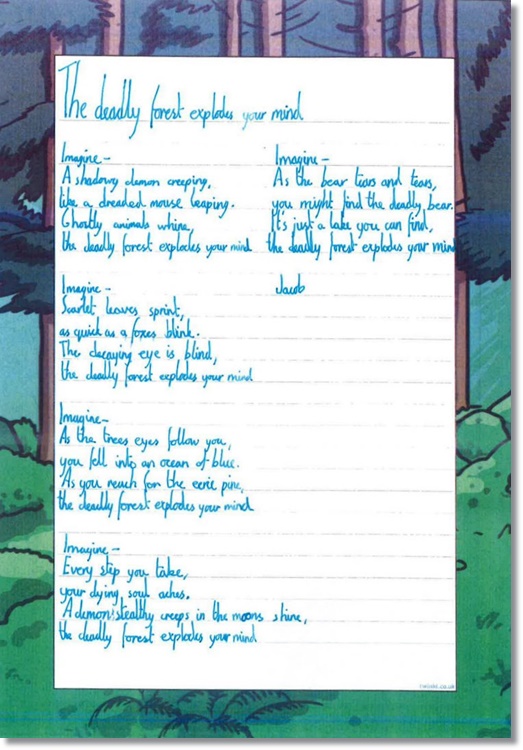 The deadly forest explodes your mind
Imagine -
A shadowy demon creeping,
like a dreaded mouse leaping.
Ghostly animals whine,
the deadly forest explodes your mind
Imagine -
Scarlet leaves sprint,
as quick as a foxes blink.
The decaying eye is blind,
the deadly forest explodes your mind
Imagine -
As the trees eyes follow you,
you fell into an ocean of blue.
As you reach for the eerie pine,
the deadly forest explodes your mind
Imagine -
Every step you take,
your dying, soul aches.
A demon stealthy creeps in the moons shine,
the deadly forest explodes your mind
Imagine -
As the bear tears and tears,
you might find the deadly, bear.
It's just a lake you can find,
the deadly forest explodes your mind
Jacob
twinkl.co.uk